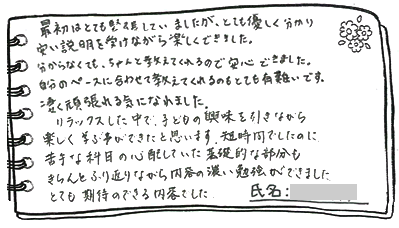 最初はとても緊張していましたが、とても優しく分かり
安い説明を受けながら楽しくできました。
分からなくても、ちゃんと教えてくれるので安心できました。
自分のペースに合わせて教えてくれるのもとても有難いです。
凄く頑張れる気になれました。
リラックスした中で、子どもの興味を引きながら
楽しく学ぶ事ができたと思います。短時間でしたのに
苦手な科目の心配していた基礎的な部分も
きちんとふり返りながら内容の濃い勉強ができました
とても期待のできる内容でした
氏名: